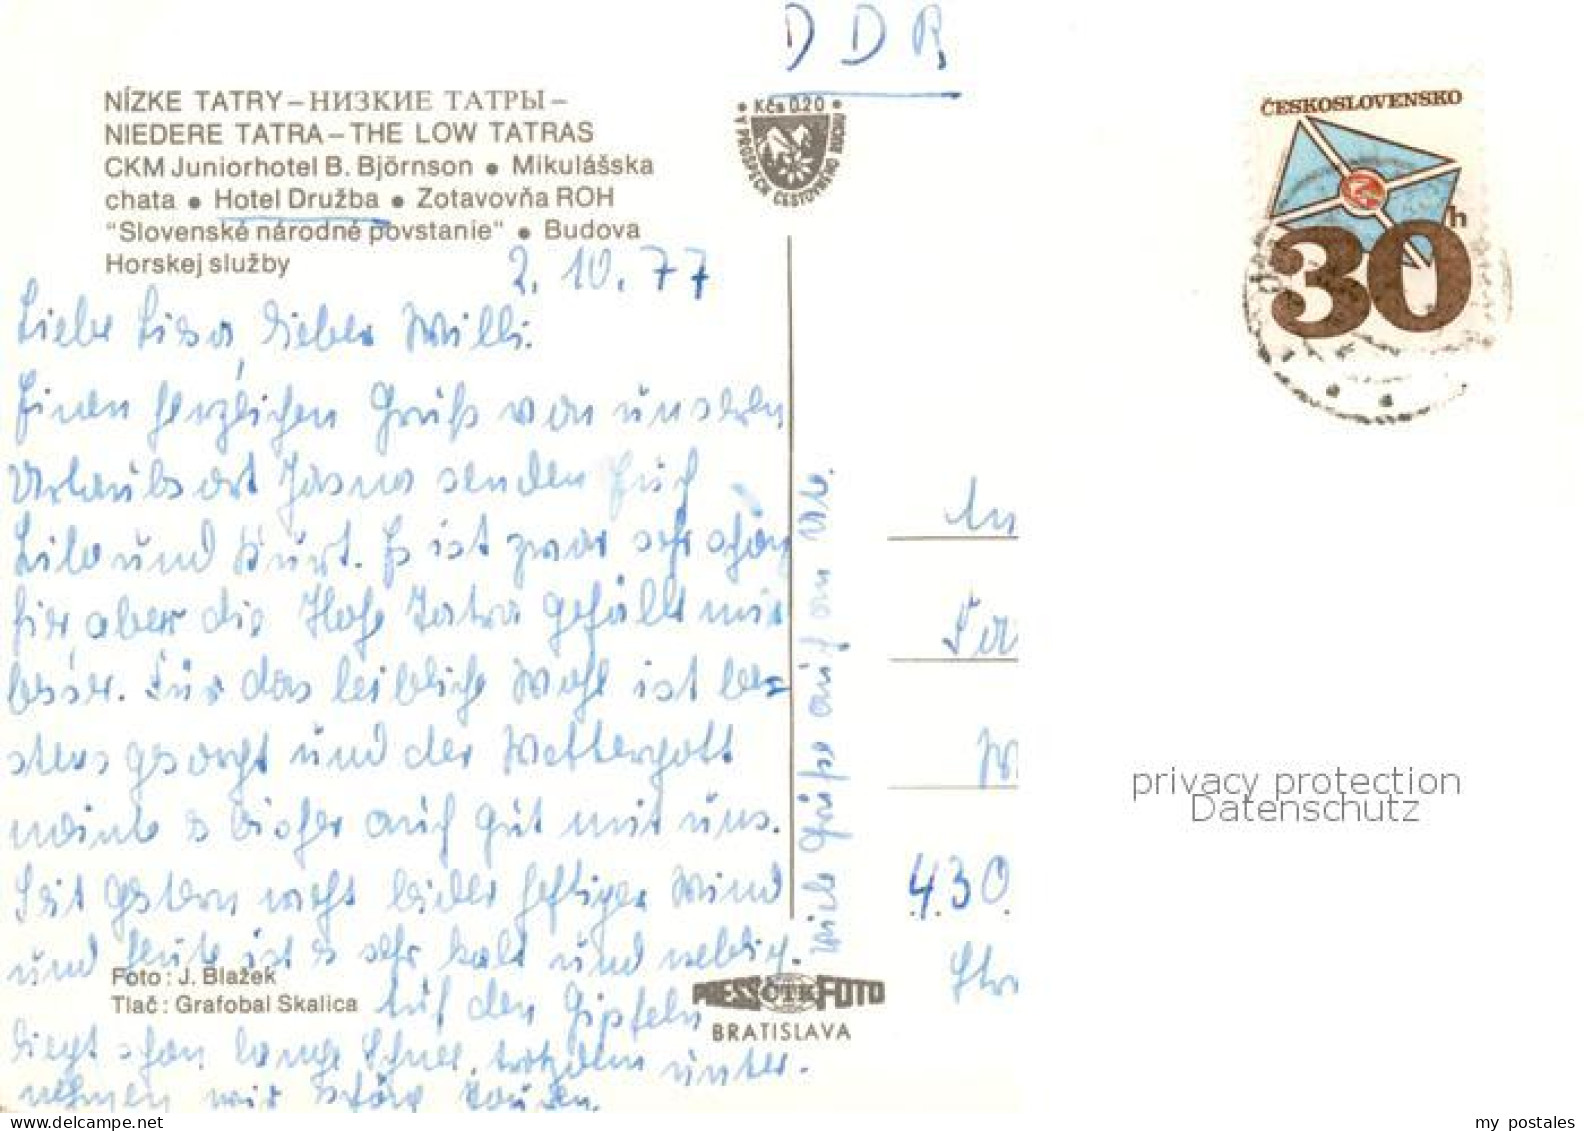 DDR
NÍZKE TATRY – НИЗКИЕ ТАТРЫ –
NIEDERE TATRA – THE LOW TATRAS
CKM Juniorhotel B. Björnson ● Mikulášska
chata ● Hotel Družba ● Zotavovňa ROH
"Slovenské národné povstanie" ● Budova
Horskej služby
2.10.77
Liebe Lisa, lieber Willi.
Einen herzlichen Gruß von unseren
Urlaubsort Jasna senden Euch
Lilo und Kurt. Es ist zwar sehr schön
hier, aber die Hohe Tatra gefällt mir
besser. Für das leibliche Wohl ist be=
stens gesorgt und der Wettergott
meinte es bisher auch gut mit uns.
Seit gestern weht leider heftiger Wind
und heute ist es sehr kalt und neblig.
Auf den Gipfeln
liegt schon lange Schnee, trotzdem unter-
nehmen wir Touren.
viele Grüße auch an
Foto: J. Blažek
Tlač: Grafobal Skalica
● Kčs 0.20 ●
V PROSPECH CESTOVNÉHO RUCHU
PRESS ČTK FOTO
BRATISLAVA
ČESKOSLOVENSKO
30h
430
privacy protection
Datenschutz
www.delcampe.net
my_postales